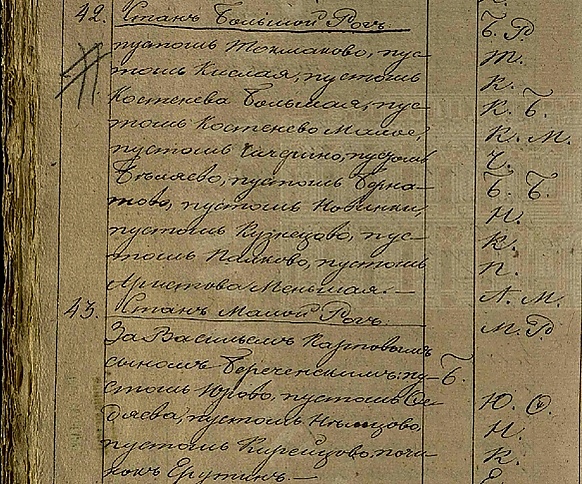 42. Станъ Большой Рогъ Б. Р.
пустошь Токмаково, пус- Т.
тошь Кислая, пустошь К.
Костенева Большая, пус- К. Б.
тошь Костенево Малое, К. М.
пустошь Чичерино, пустошь Ч.
Бѣляево, пустошь Берна- Б. Б.
тово, пустошь Новинки, Н.
пустошь Кузнецово, пус- К.
тошь Палково, пустошь П.
Аристова Меньшая.— А. М.
43. Станъ Малой Рогъ. М. Р.
За Васильемъ Карповымъ
сыномъ Береченскимъ: пу- Б.
стошь Юрово, пустошь Ѳе- Ю. Ѳ.
дяева, пустошь Нѣмцово Н.
пустошь Кирейцово, почи- К.
нокъ Ерутинъ.— Е.